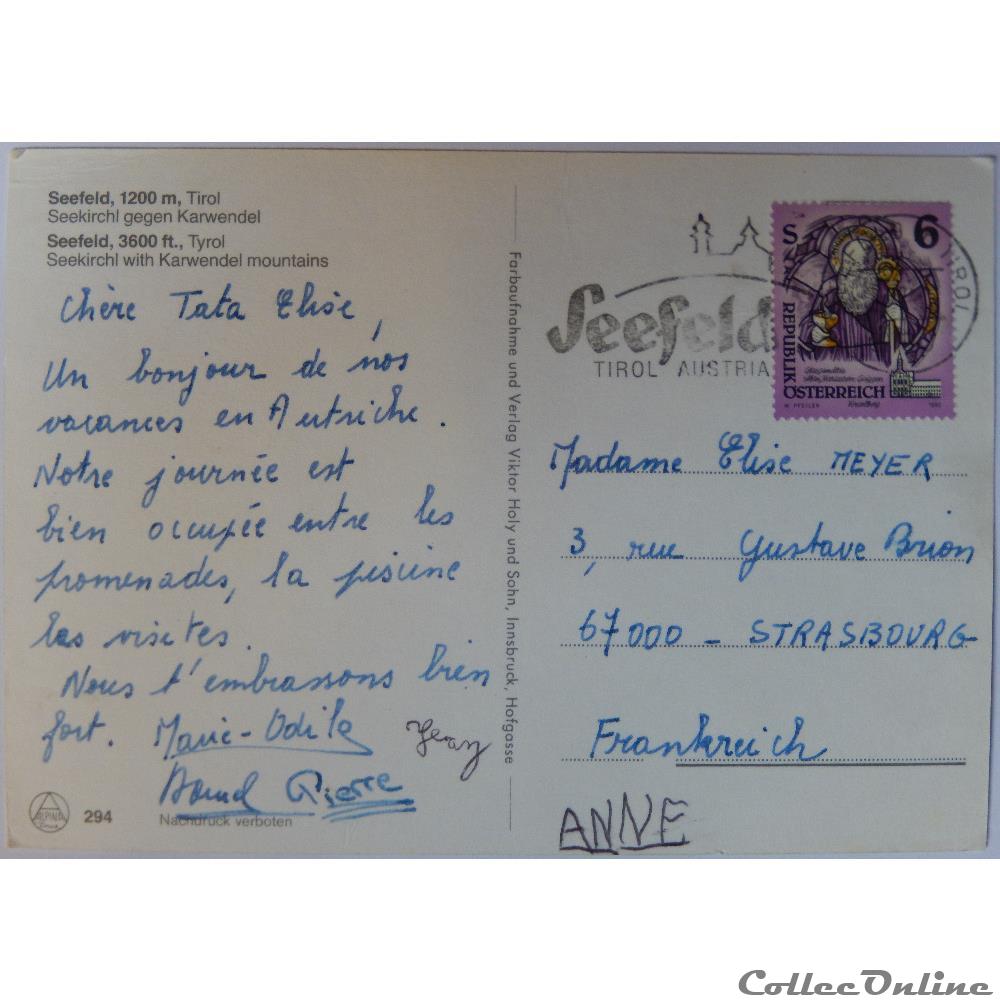 Seefeld, 1200 m, Tirol
Seekirchl gegen Karwendel
Seefeld, 3600 ft., Tyrol
Seekirchl with Karwendel mountains
Chère Tata Elise,
Un bonjour de nos
vacances en Autriche.
Notre journée est
bien occupée entre les
promenades, la piscine
les visites.
Nous t'embrassons bien
fort. Marie-Odile
Pierre
294
ALPINA
Nachdruck verboten
Farbaufnahme und Verlag Viktor Holy und Sohn, Innsbruck, Hofgasse
Seefeld
TIROL AUSTRIA
TIROL
S 6
REPUBLIK
ÖSTERREICH
Madame Elise MEYER
3, rue Gustave Brion
67000 - STRASBOURG
Frankreich
ANNE
CollecOnline